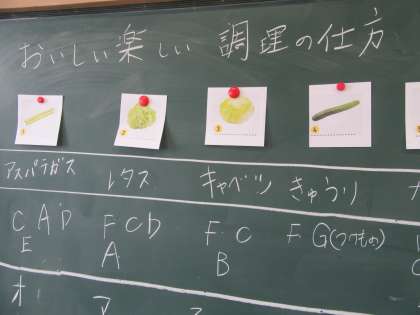 おいしい楽しい 調理の仕方
1 2 3 4
アスパラガス レタス キャベツ きゅうり
C A D F C D F C F G(つけもの)
E A B
オ ア